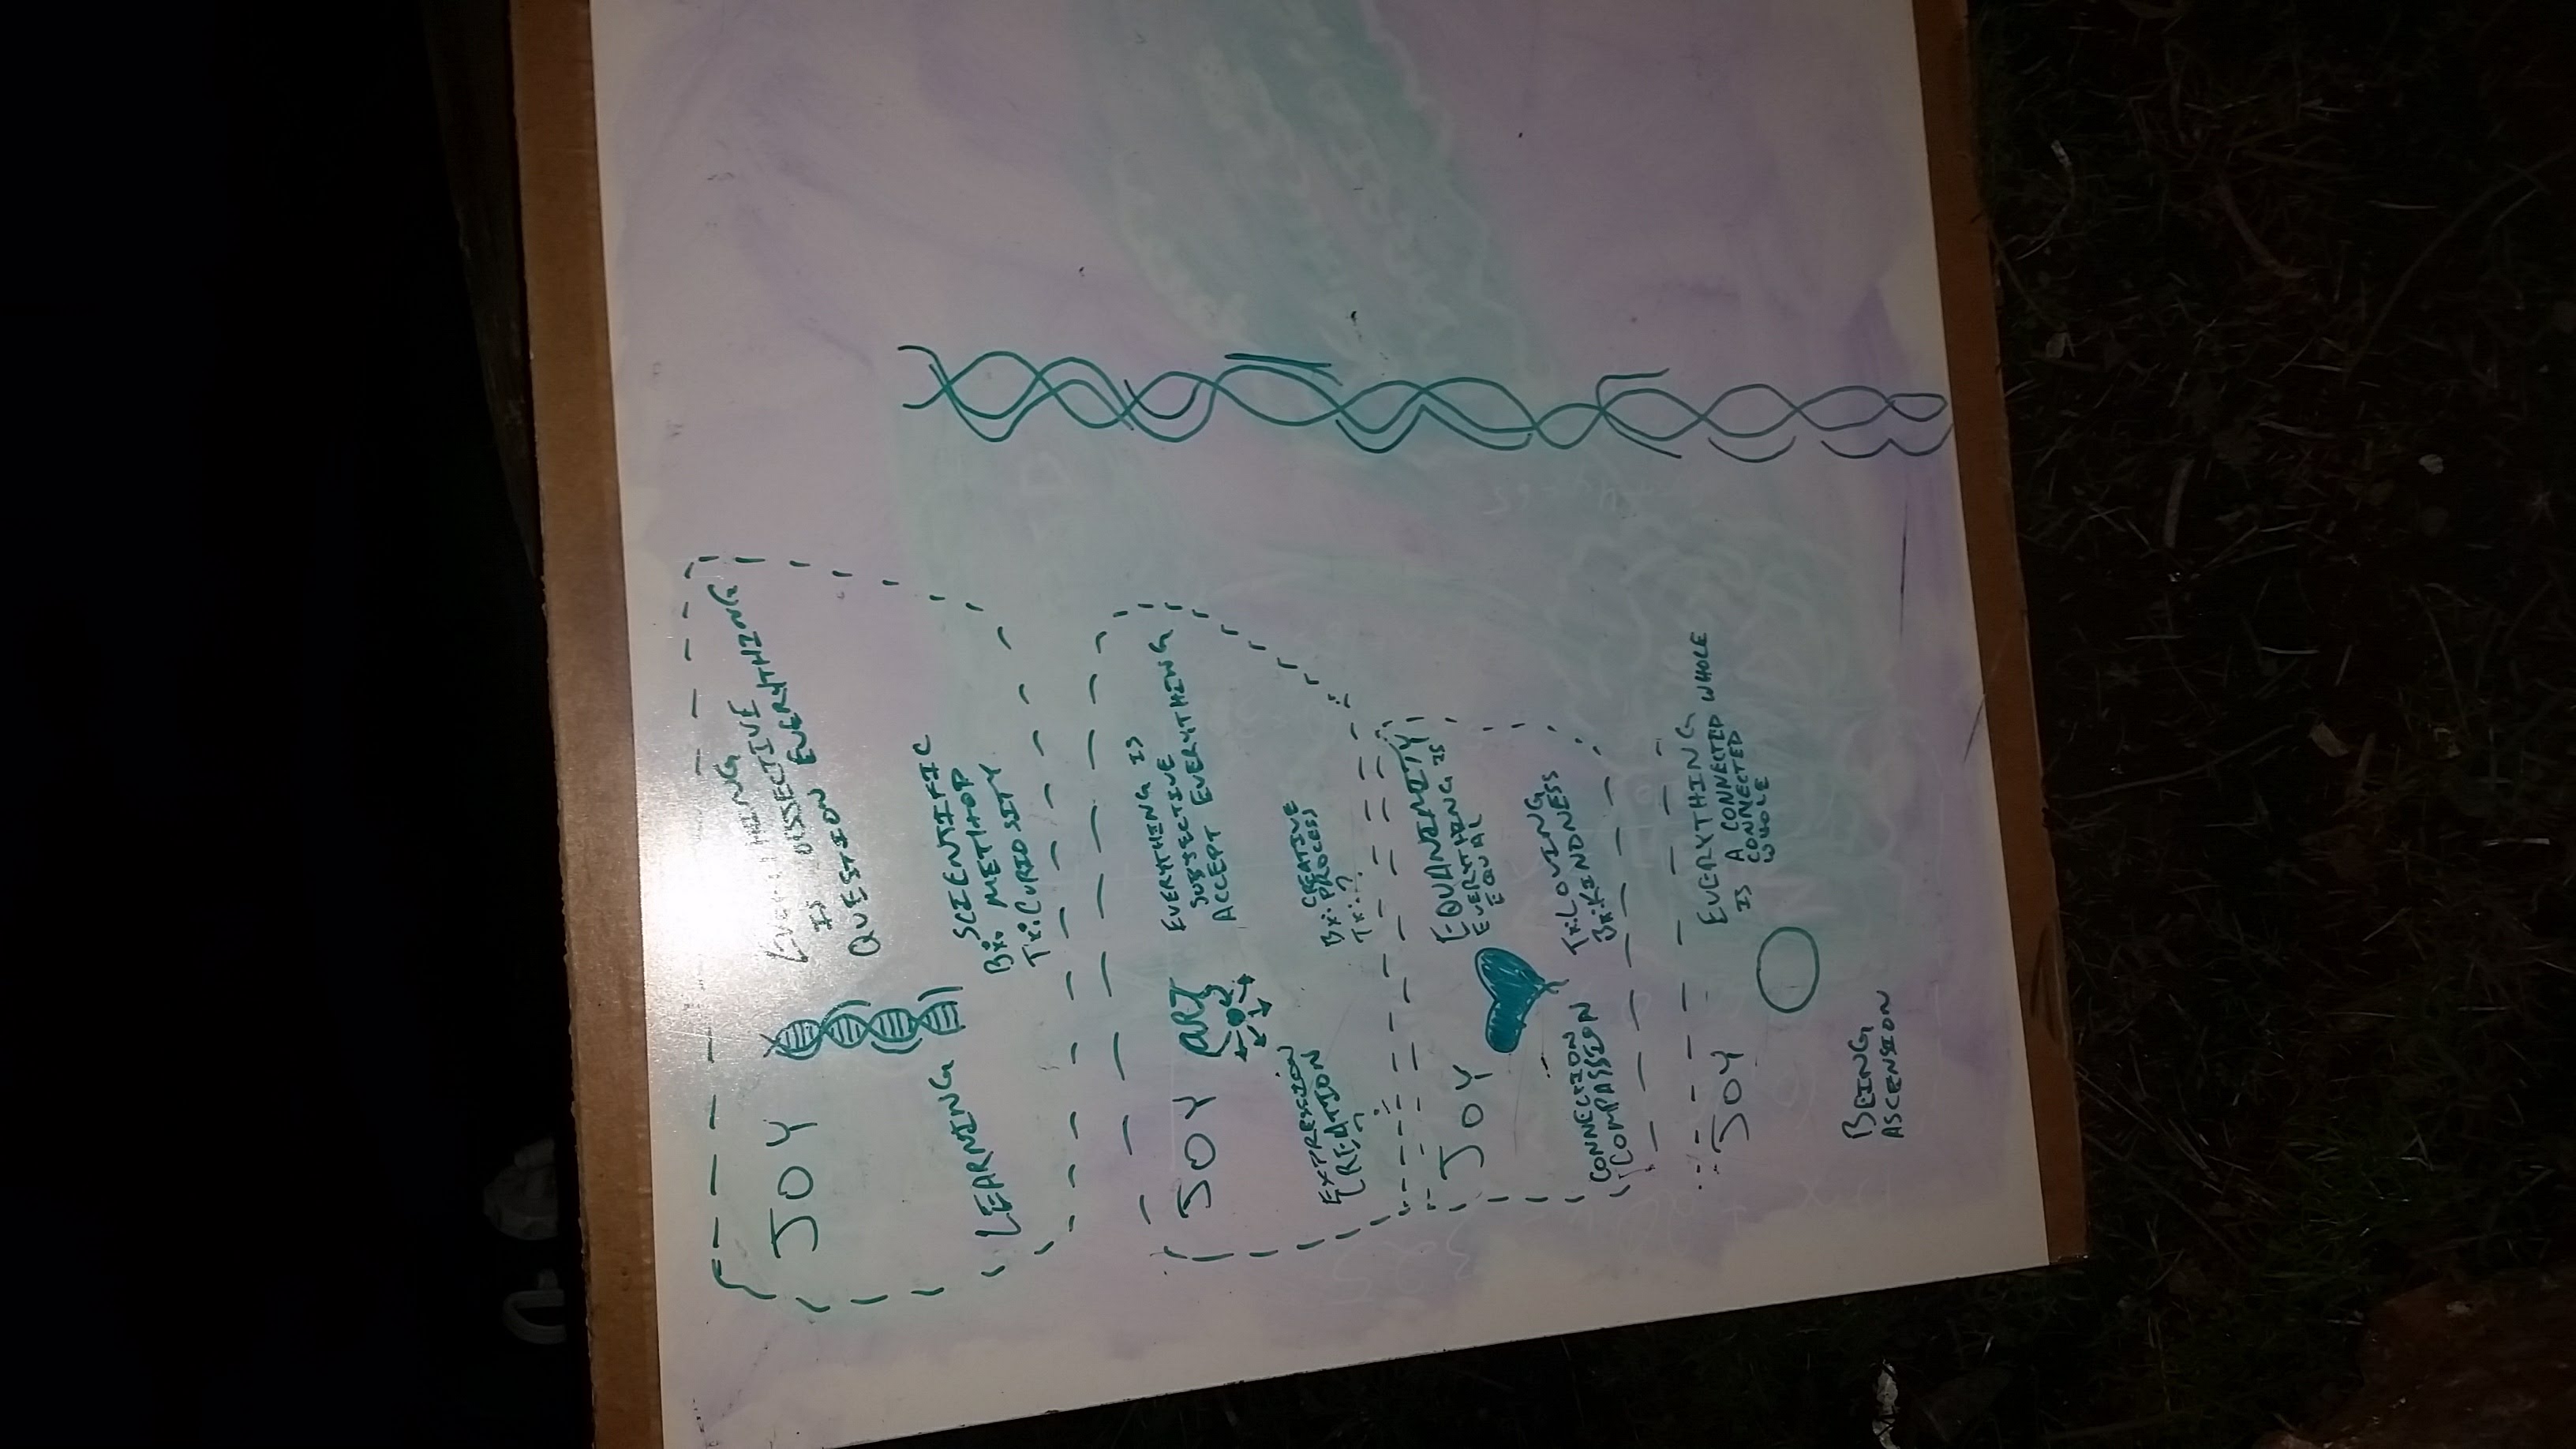 JOY
EVERYTHING
IS DISSECTIVE
QUESTION EVERYTHING
LEARNING
SCIENTIFIC
Bx: METHOD
Tx: CURIOSITY
JOY
ART
EVERYTHING IS
SUBJECTIVE
ACCEPT EVERYTHING
EXPRESSION
CREATION
?
CREATIVE
Bx: PROCESS
Tx: ?
JOY
EQUANIMITY
EVERYTHING IS
EQUAL
CONNECTION
COMPASSION
Tx: LOVING
Bx: KINDNESS
JOY
EVERYTHING
IS A CONNECTED WHOLE
CONNECTED
WHOLE
BEING
ASCENSION